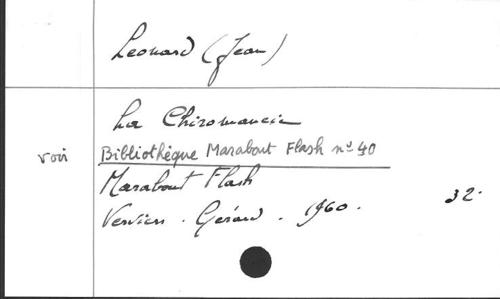 Leonard (Jean)
La Chiromancie
voir Bibliothèque Marabout Flash nº 40
Marabout Flash
Verviers . Gérard . 1960 . 32.